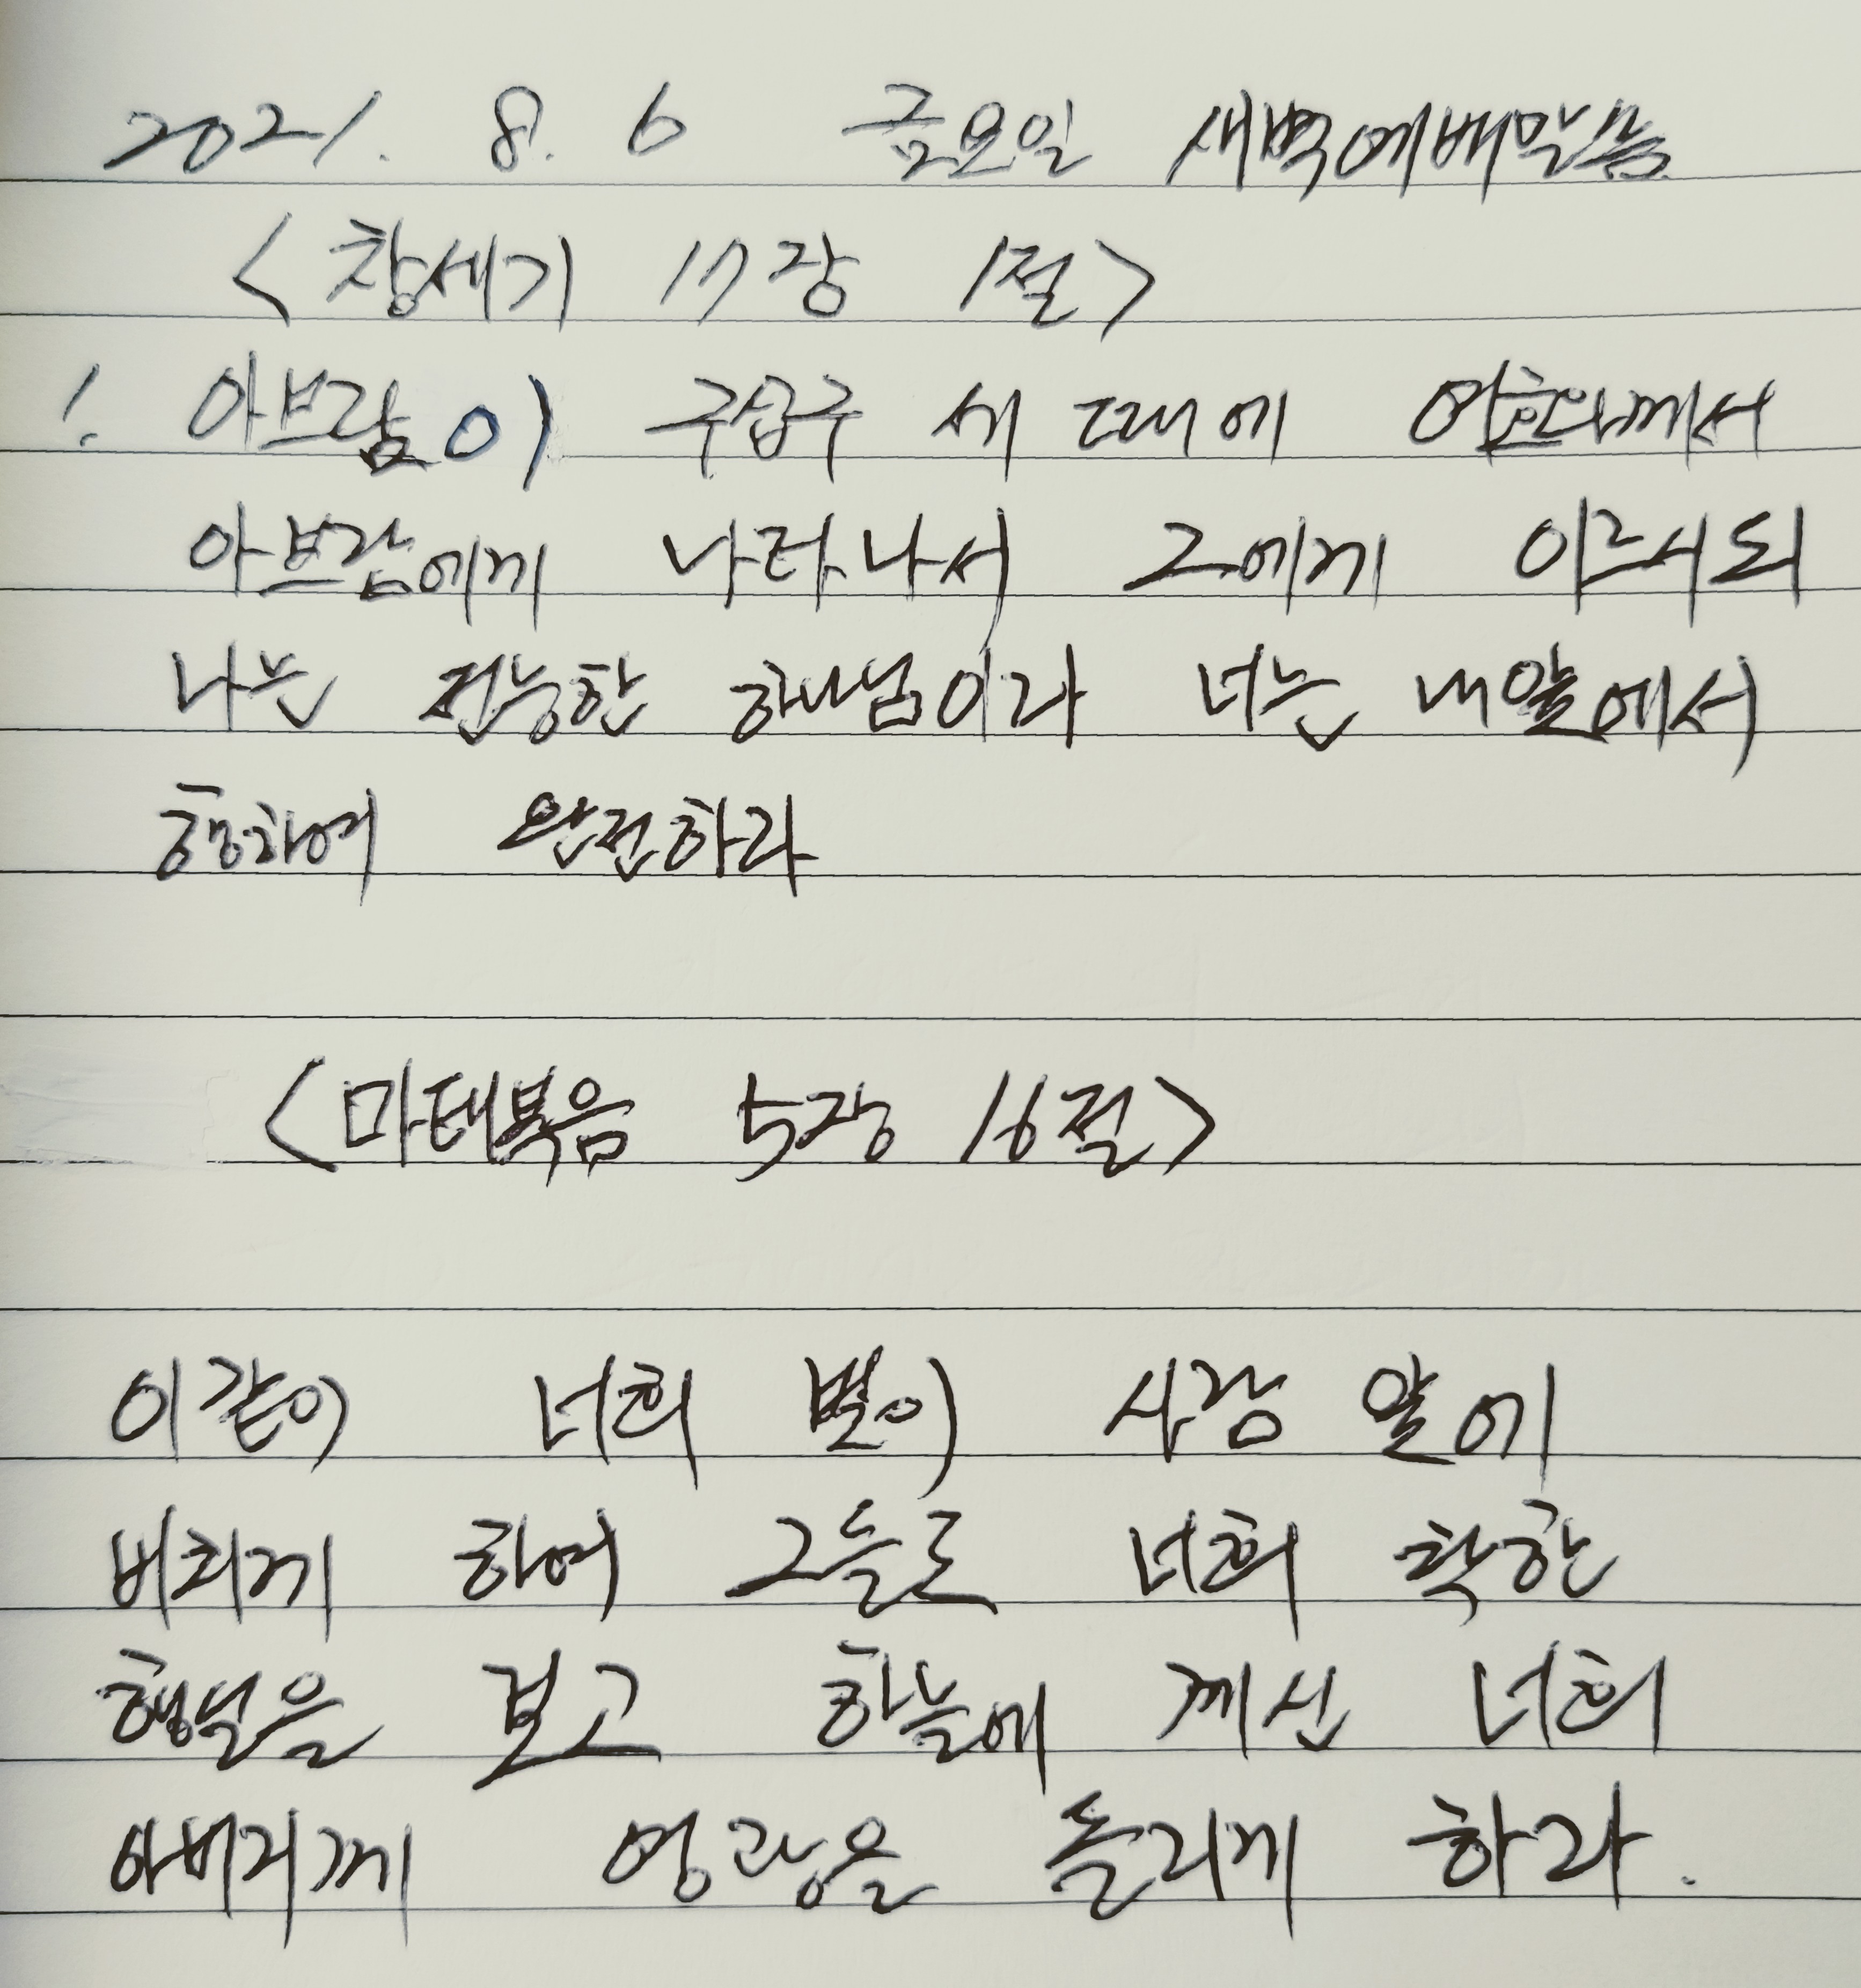 2021. 8. 6 금요일 새벽예배말씀
<창세기 17장 1절>
1. 아브람이 구십구 세 때에 여호와께서
아브람에게 나타나서 그에게 이르시되
나는 전능한 하나님이라 너는 내앞에서
행하여 완전하라
<마태복음 5장 16절>
이같이 너희 빛이 사람 앞에
비치게 하여 그들로 너희 착한
행실을 보고 하늘에 계신 너희
아버지께 영광을 돌리게 하라.